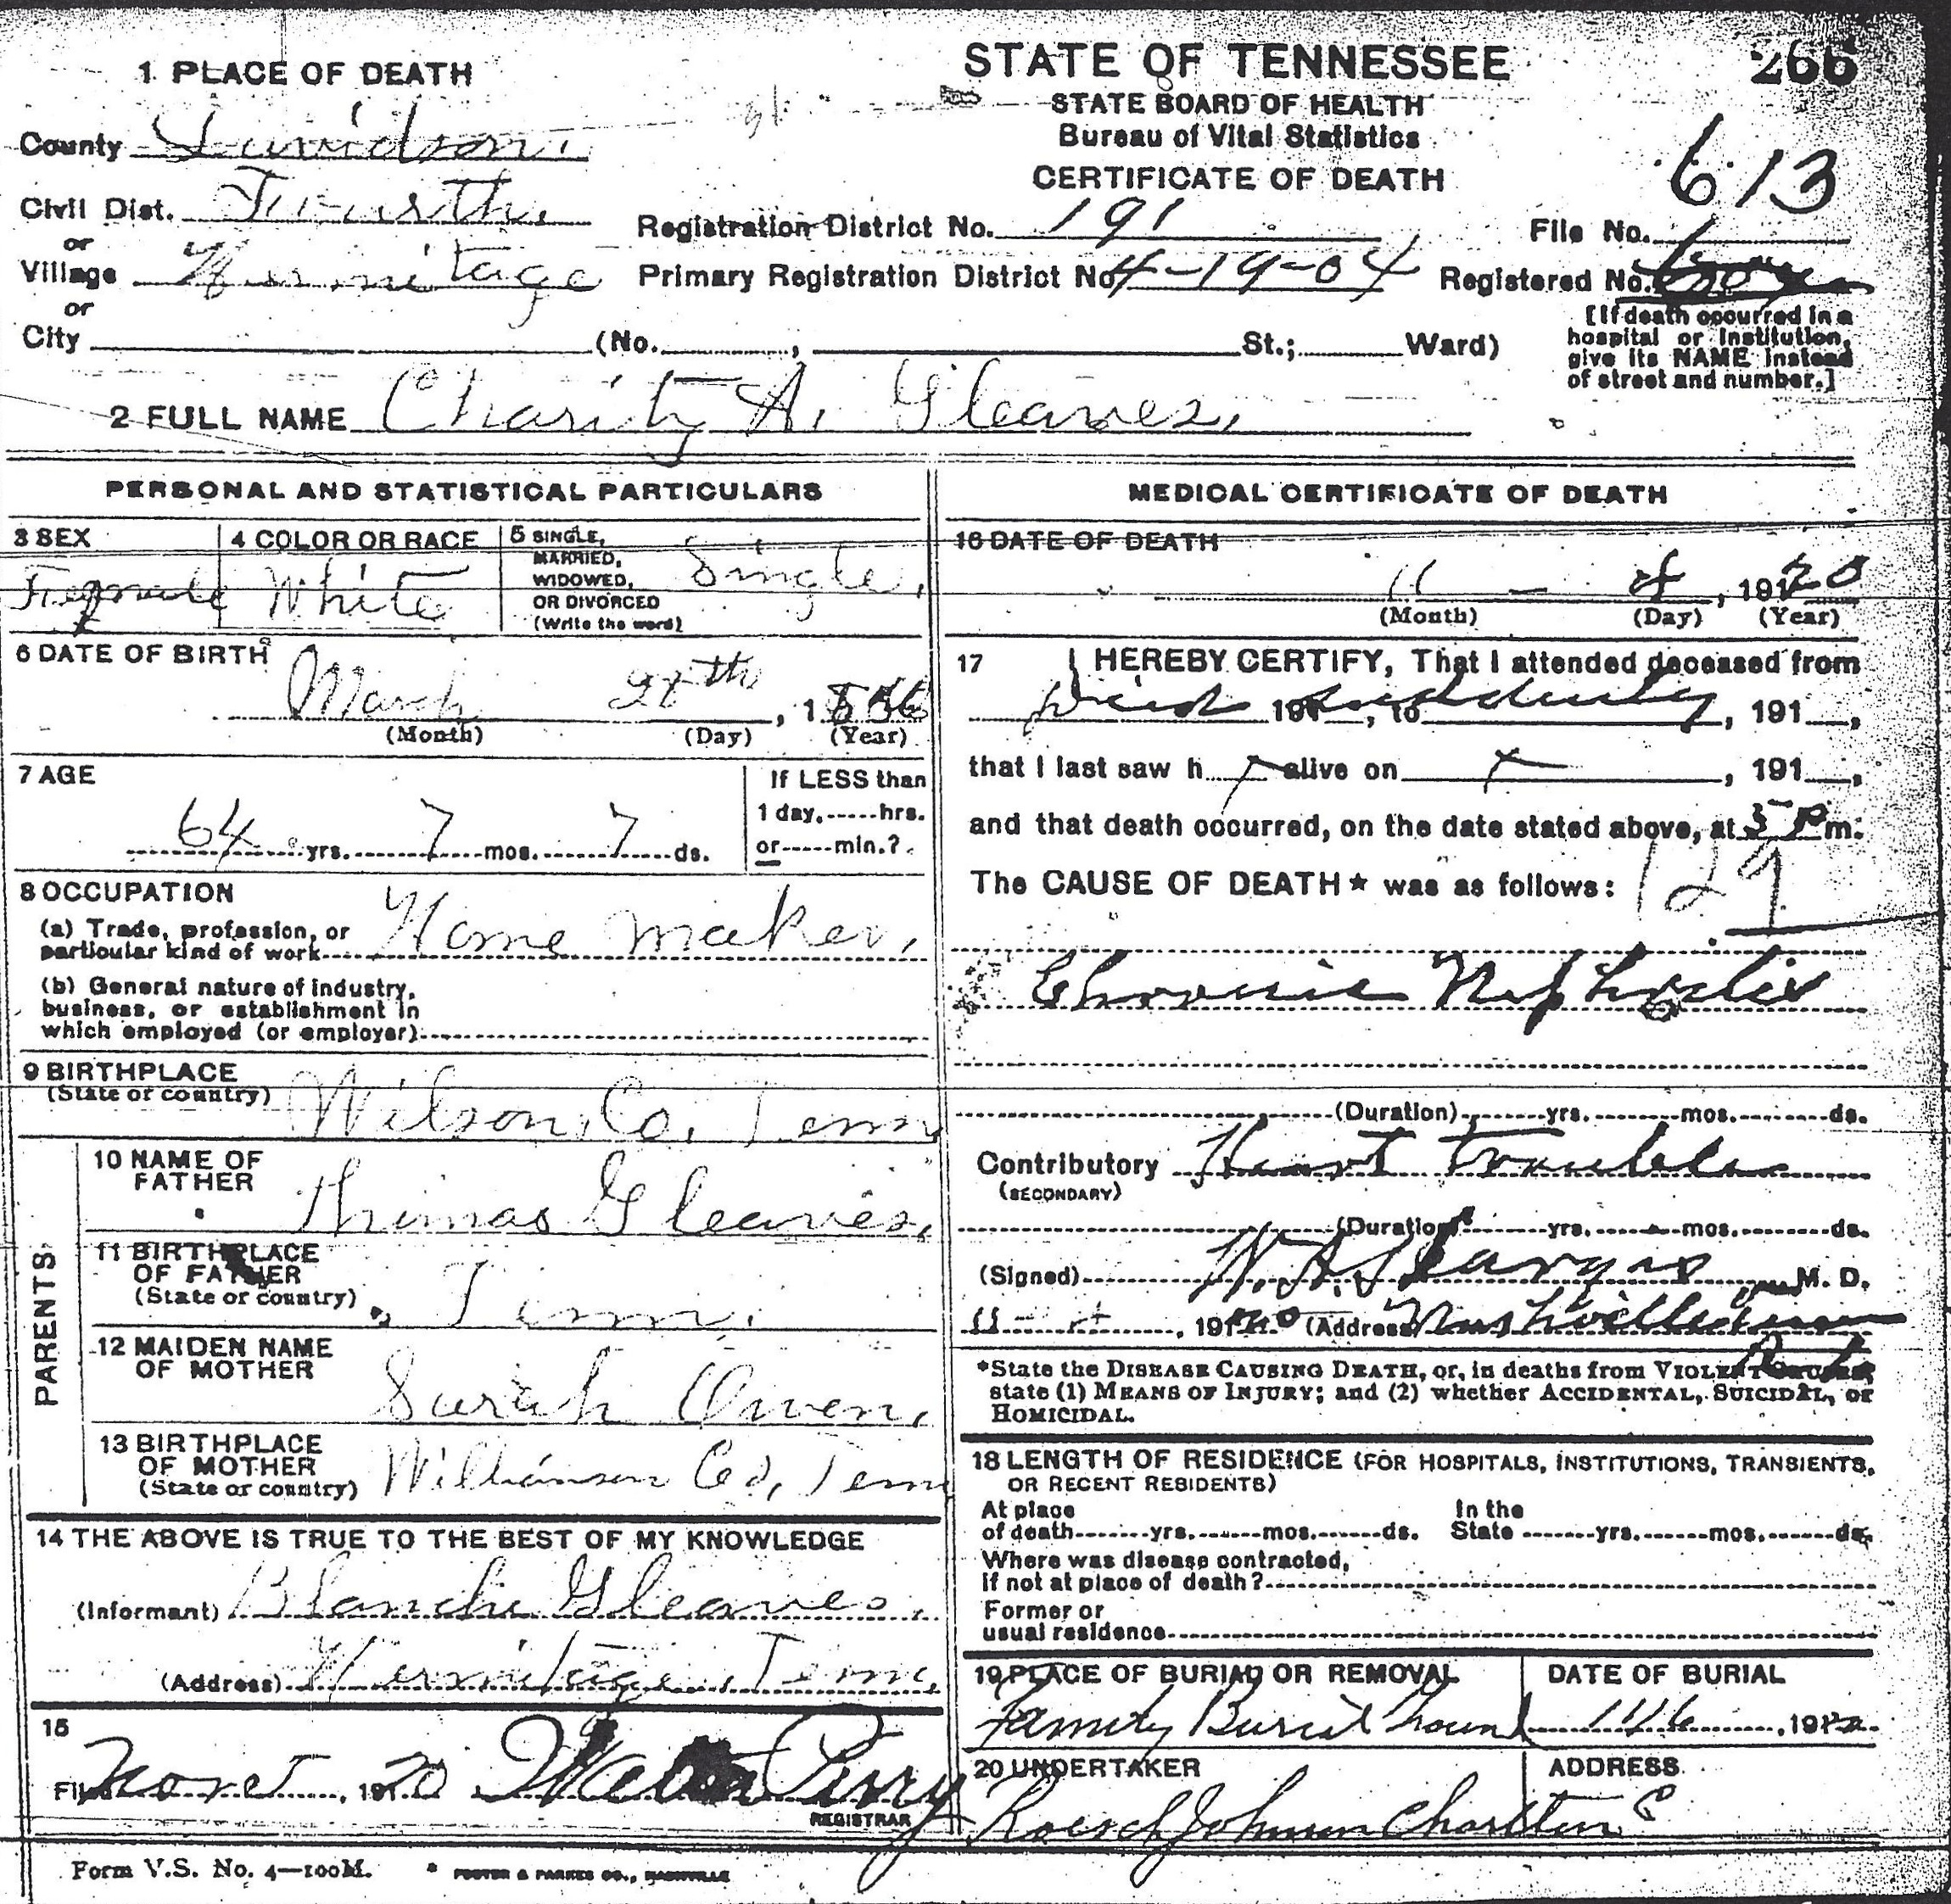 266
STATE OF TENNESSEE
STATE BOARD OF HEALTH
Bureau of Vital Statistics
CERTIFICATE OF DEATH
613
1 PLACE OF DEATH
County Davidson.
Civil Dist. Fourth.
or
Village Hermitage
or
City (No. , St.; Ward)
Registration District No. 191
Primary Registration District No. 4-19-04
File No.
Registered No.
[If death occurred in a
hospital or institution,
give its NAME instead
of street and number.]
2 FULL NAME Charity A. Gleaves.
PERSONAL AND STATISTICAL PARTICULARS
3 SEX
Female
4 COLOR OR RACE
White
5 SINGLE,
MARRIED,
WIDOWED,
OR DIVORCED
(Write the word)
Single.
6 DATE OF BIRTH
March 28th, 1856
(Month) (Day) (Year)
7 AGE
64 yrs. 7 mos. 7 ds.
If LESS than
1 day, hrs.
or min.?
8 OCCUPATION
(a) Trade, profession, or
particular kind of work Home maker.
(b) General nature of industry,
business, or establishment in
which employed (or employer)
9 BIRTHPLACE
(State or country) Wilson, Co. Tenn
PARENTS
10 NAME OF
FATHER
Thomas Gleaves.
11 BIRTHPLACE
OF FATHER
(State or country) Tenn.
12 MAIDEN NAME
OF MOTHER
Sarah Owen.
13 BIRTHPLACE
OF MOTHER
(State or country) Williamson Co, Tenn
14 THE ABOVE IS TRUE TO THE BEST OF MY KNOWLEDGE
(Informant) Blanche Gleaves.
(Address) Hermitage, Tenn.
15
Filed Nov 5, 1920 Perry
REGISTRAR
MEDICAL CERTIFICATE OF DEATH
16 DATE OF DEATH
11 - 4, 1920
(Month) (Day) (Year)
17 I HEREBY CERTIFY, That I attended deceased from
Died 191, to suddenly, 191 ,
that I last saw h alive on , 191 ,
and that death occurred, on the date stated above, at 5 P m.
The CAUSE OF DEATH* was as follows: 129
Chronic Nephritis
(Duration) yrs. mos. ds.
Contributory Heart Trouble
(SECONDARY)
(Duration) yrs. mos. ds.
(Signed) M. D.
11-4, 1920 (Address) Nashville Tenn
*State the DISEASE CAUSING DEATH, or, in deaths from VIOLENT CAUSES,
state (1) MEANS OF INJURY; and (2) whether ACCIDENTAL, SUICIDAL, or
HOMICIDAL.
18 LENGTH OF RESIDENCE (FOR HOSPITALS, INSTITUTIONS, TRANSIENTS,
OR RECENT RESIDENTS)
At place
of death yrs. mos. ds.
In the
State yrs. mos. ds.
Where was disease contracted,
if not at place of death?
Former or
usual residence
19 PLACE OF BURIAL OR REMOVAL
Family Burial Ground
DATE OF BURIAL
11/6, 1920
20 UNDERTAKER
ADDRESS
Roesch Johnson Charlton C
Form V.S. No. 4—100M.
FOSTER & PARKES CO., NASHVILLE